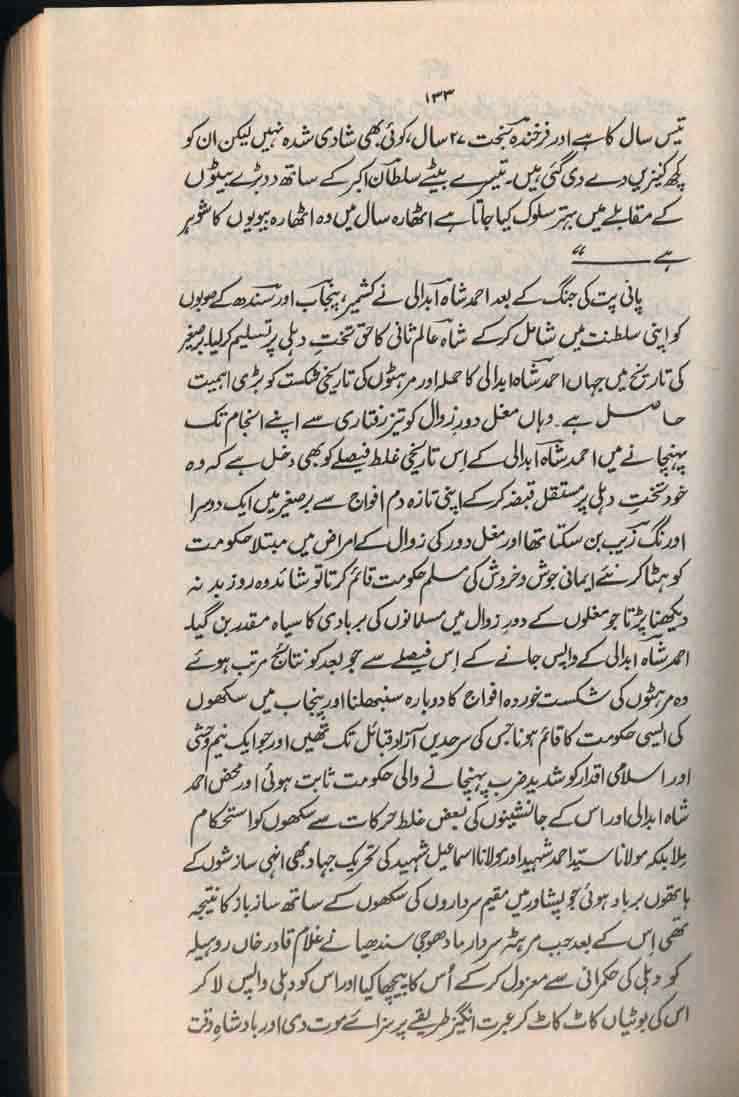 ۱۳۳
تیس سال کا ہے اور فرخندہ بخت ۲۷ سال، کوئی بھی شادی شدہ نہیں لیکن ان کو
کچھ کنیزیں دے دی گئی ہیں۔ تیسرے بیٹے سلطان اکبر کے ساتھ دو بڑے بیٹوں
کے مقابلے میں بہتر سلوک کیا جاتا ہے اٹھارہ سال میں وہ اٹھارہ بیویوں کا شوہر
ہے ــــــ"
پانی پت کی جنگ کے بعد احمد شاہ ابدالی نے کشمیر، پنجاب اور سندھ کے صوبوں
کو اپنی سلطنت میں شامل کر کے شاہ عالم ثانی کا حق تختِ دہلی پر تسلیم کر لیا۔ برصغیر
کی تاریخ میں جہاں احمد شاہ ابدالی کا حملہ اور مرہٹوں کی تاریخی شکست کو بڑی اہمیت
حاصل ہے۔ وہاں مغل دورِ زوال کو تیز رفتاری سے اپنے انجام تک
پہنچانے میں احمد شاہ ابدالی کے اِس تاریخی غلط فیصلے کو بھی دخل ہے کہ وہ
خود تختِ دہلی پر مستقل قبضہ کر کے اپنی تازہ دم افواج سے برصغیر میں ایک دوسرا
اورنگ زیب بن سکتا تھا اور مغل دور کی زوال کے امراض میں مبتلا حکومت
کو ہٹا کر نئے ایمانی جوش و خروش کی مسلم حکومت قائم کرتا تو شائد وہ روز بد نہ
دیکھنا پڑتا جو مغلوں کے دورِ زوال میں مسلمانوں کی بربادی کا سیاہ مقدر بن گیا۔
احمد شاہ ابدالی کے واپس جانے کے اِس فیصلے سے جو بعد کو نتائج مرتب ہوئے
وہ مرہٹوں کی شکست خوردہ افواج کا دوبارہ سنبھلنا اور پنجاب میں سکھوں
کی ایسی حکومت کا قائم ہونا جس کی سرحدیں آزاد قبائل تک تھیں اور جو ایک نیم وحشی
اور اسلامی اقدار کو شدید ضرب پہنچانے والی حکومت ثابت ہوئی اور محض احمد
شاہ ابدالی اور اس کے جانشینوں کی بعض غلط حرکات سے سکھوں کو استحکام
مِلا بلکہ مولانا سیّد احمد شہید اور مولانا اسماعیل شہید کی تحریک جہاد بھی انہی سازشوں کے
ہاتھوں برباد ہوئی جو پشاور میں مقیم سرداروں کی سکھوں کے ساتھ ساز باز کا نتیجہ
تھی اِس کے بعد جب مرہٹہ سردار مادھوجی سندھیا نے غلام قادر خاں روہیلہ
کو دہلی کی حکمرانی سے معزول کر کے اُس کا پیچھا کیا اور اس کو دہلی واپس لا کر
اس کی بوٹیاں کاٹ کاٹ کر عبرت انگیز طریقے پر سزائے موت دی اور بادشاہِ وقت